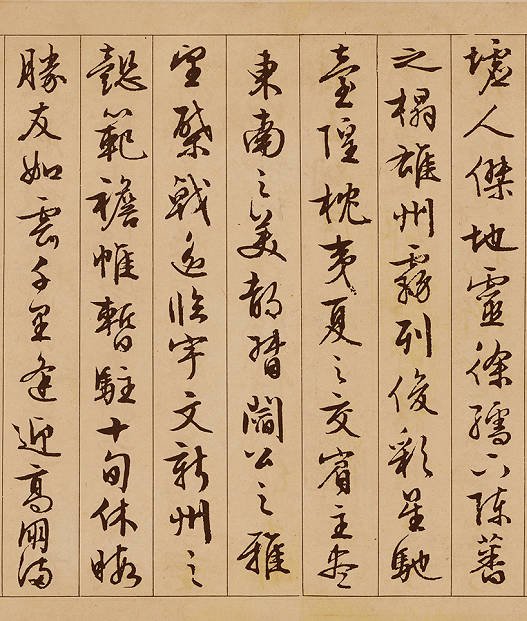 墟人傑地靈徐孺下陳蕃
之榻雄州霧列俊彩星馳
臺隍枕夷夏之交賓主盡
東南之美都督閻公之雅
望棨戟遙臨宇文新州之
懿範襜帷暫駐十旬休暇
勝友如雲千里逢迎高朋滿